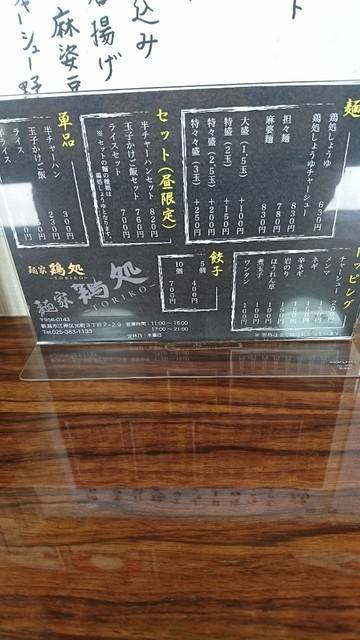 ト
込み
揚げ
麻婆豆
ャーシュー
麺
鶏処しょうゆ 630円
鶏処しょうゆチャーシュー 830円
担々麺 780円
麻婆麺 830円
大盛(1.5玉) +100円
特盛(2玉) +150円
特々盛(2.5玉) +200円
特々々盛(3玉) +250円
セット(昼限定)
半チャーハンセット 820円
玉子かけご飯セット 760円
ライスセット 700円
※セットの麺の種類は
鶏処しょうゆとなります。
単品
半チャーハン 300円
玉子かけご飯 230円
ライス
半ライス
トッピング
チャーシュー
メンマ
ネギ
辛ネギ
岩のり
ほうれん草
煮玉子 100円
ワンタン 100円
餃子
5個 400円
10個 700円
麺家 鶏処
-TORIKO-
麺家 鶏処
-TORIKO-
〒956-0143
Tel.025-383-1133
営業時間:11:00～15:00
17:00～21:00
定休日:木曜日